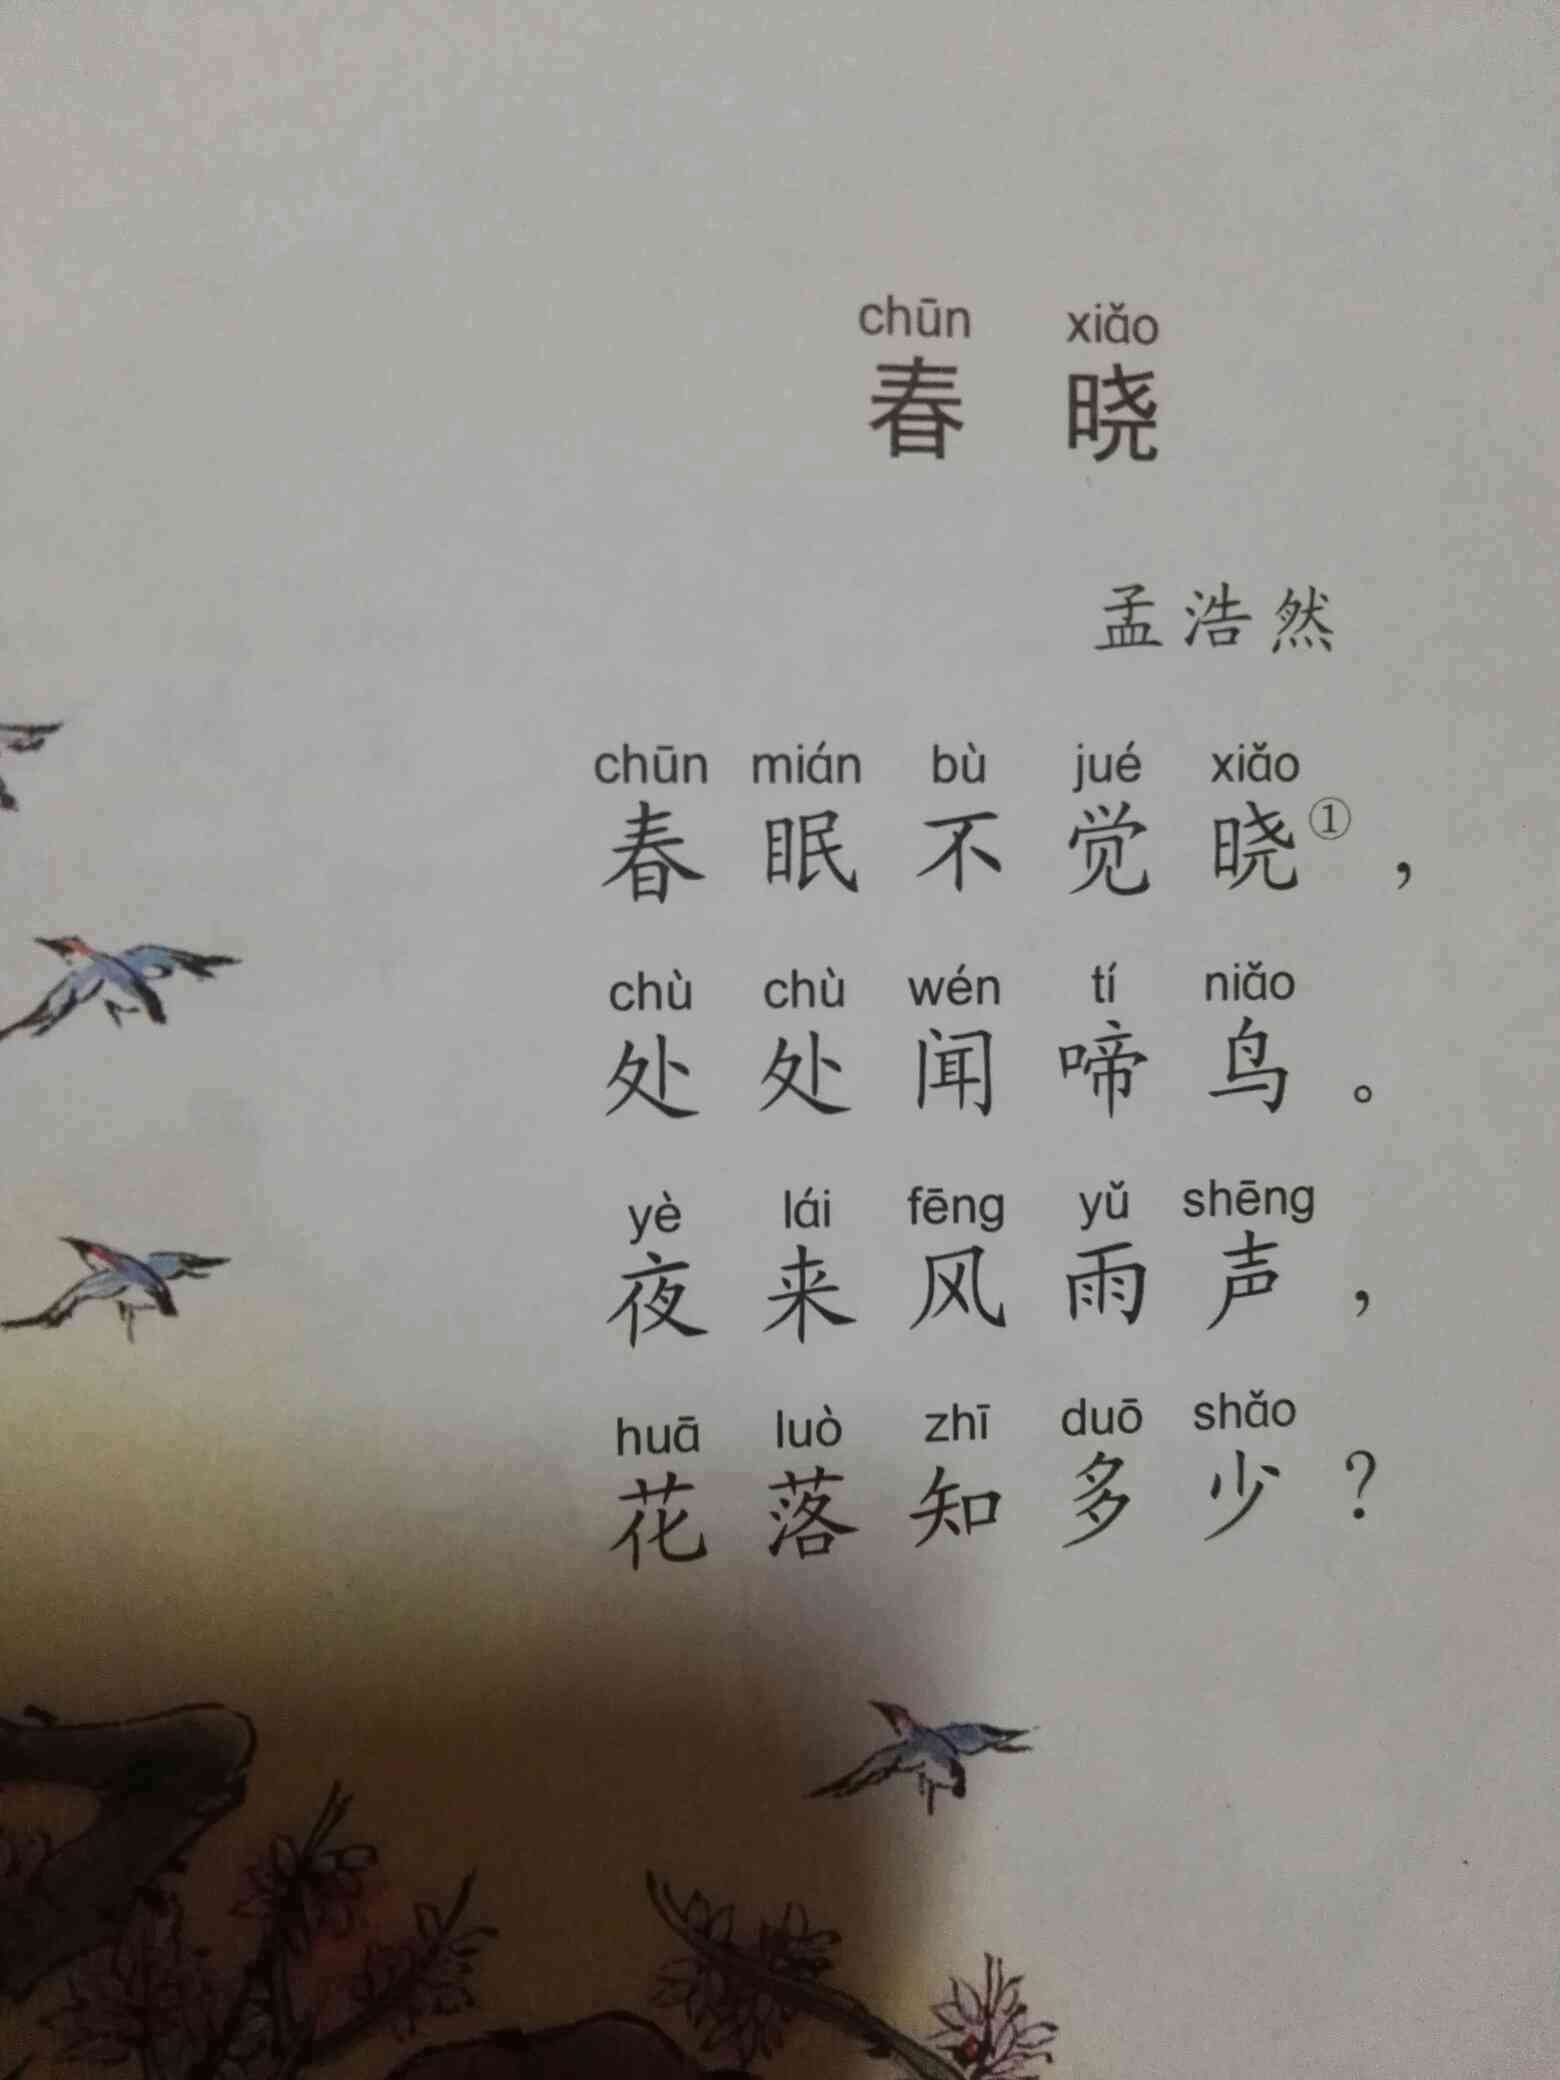 chūn xiǎo
春 晓
孟浩然
chūn mián bù jué xiǎo
春 眠 不 觉 晓①，
chù chù wén tí niǎo
处 处 闻 啼 鸟。
yè lái fēng yǔ shēng
夜 来 风 雨 声，
huā luò zhī duō shǎo
花 落 知 多 少？